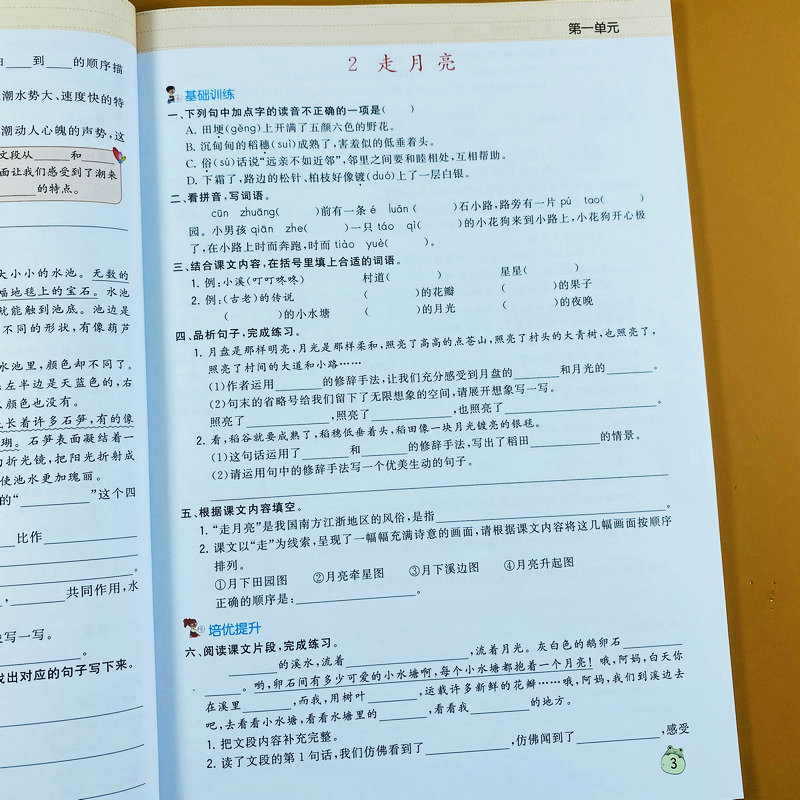 由____到____的顺序描
潮水势大、速度快的特
潮动人心魄的声势,这
文段从____和____
面让我们感受到了潮来
______的特点。
大大小小的水池。无数的
幅地毯上的宝石。水池
就能触到池底。池边是
不同的形状,有像葫芦
水池里,颜色却不同了。
左半边是天蓝色的,右
颜色也没有。
长着许多石笋,有的像
瑚。石笋表面凝结着一
折光镜,把阳光折射成
使池水更加瑰丽。
的“________”这个四
比作________
________。
,______共同作用,水
写一写。
________。
找出对应的句子写下来。
第一单元
2 走月亮
基础训练
一、下列句中加点字的读音不正确的一项是( )
A. 田埂(gěng)上开满了五颜六色的野花。
B. 沉甸甸的稻穗(suì)成熟了,害羞似的低垂着头。
C. 俗(sú)话说“远亲不如近邻”,邻里之间要和睦相处,互相帮助。
D. 下霜了,路边的松针、柏枝好像镀(duó)上了一层白银。
二、看拼音,写词语。
cūn zhuāng( )前有一条 é luǎn( )石小路,路旁有一片 pú tao( )
园。小男孩 qiān zhe( )一只 táo qì( )的小花狗来到小路上,小花狗开心极
了,在小路上时而奔跑,时而 tiào yuè( )。
三、结合课文内容,在括号里填上合适的词语。
1. 例:小溪(叮叮咚咚) 村道( ) 星星( )
2. 例:(古老)的传说 ( )的花瓣 ( )的果子
( )的小水塘 ( )的月光 ( )的夜晚
四、品析句子,完成练习。
1. 月盘是那样明亮,月光是那样柔和,照亮了高高的点苍山,照亮了村头的大青树,也照亮了,
照亮了村间的大道和小路……
(1)作者运用______的修辞手法,让我们充分感受到月盘的______和月光的______。
(2)句末的省略号给我们留下了无限想象的空间,请展开想象写一写。
________,照亮了________,也照亮了________________。
2. 看,稻谷就要成熟了,稻穗低垂着头,稻田像一块月光镀亮的银毯。
(1)这句话运用了______和______的修辞手法,写出了稻田________的情景。
(2)请运用句中的修辞手法写一个优美生动的句子。
五、根据课文内容填空。
1. “走月亮”是我国南方江浙地区的风俗,是指________________________。
2. 课文以“走”为线索,呈现了一幅幅充满诗意的画面,请根据课文内容将这几幅画面按顺序
排列。
①月下田园图 ②月亮牵星图 ③月下溪边图 ④月亮升起图
正确的顺序是:______________。
培优提升
六、阅读课文片段,完成练习。
________的溪水,流着______________,流着月光。灰白色的鹅卵石________
______。哟,卵石间有多少可爱的小水塘啊,每个小水塘都抱着一个月亮!哦,阿妈,白天你
在溪里______,而我,用树叶______,运载许多新鲜的花瓣……哦,阿妈,我们到溪边去
吧,去看看小水塘,看看水塘里的______,看看我________的地方。
1. 把文段内容补充完整。
2. 读了文段的第1句话,我们仿佛看到了__________,仿佛闻到了__________,感受
3